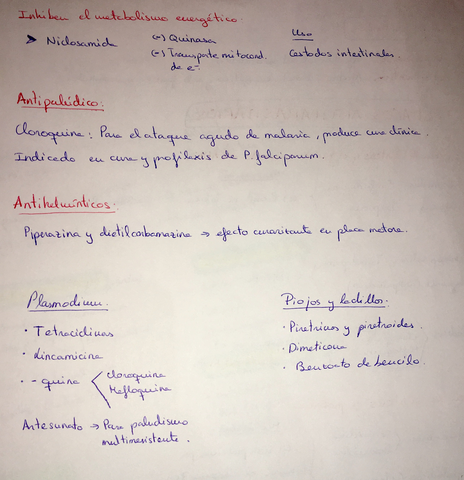 Inhiben el metabolismo energético.
➤ Niclosamida (-) Quinasa Uso
(-) Transporte mitocond. Cestodos intestinales.
de e-
Antipalúdico:
Cloroquina: Para el ataque agudo de malaria, produce cura clínica.
Indicado en cura y profilaxis de P. falciparum.
Antihelmínticos:
Piperazina y dietilcarbamazina → efecto curarizante en placa motora.
Plasmodium.
· Tetraciclinas
· Lincamicina
· - quina < cloroquina
Mefloquina
Artesunato → Para paludismo
multirresistente.
Piojos y ladillas.
· Piretrinas y piretroides.
· Dimeticona
· Benzoato de bencilo.